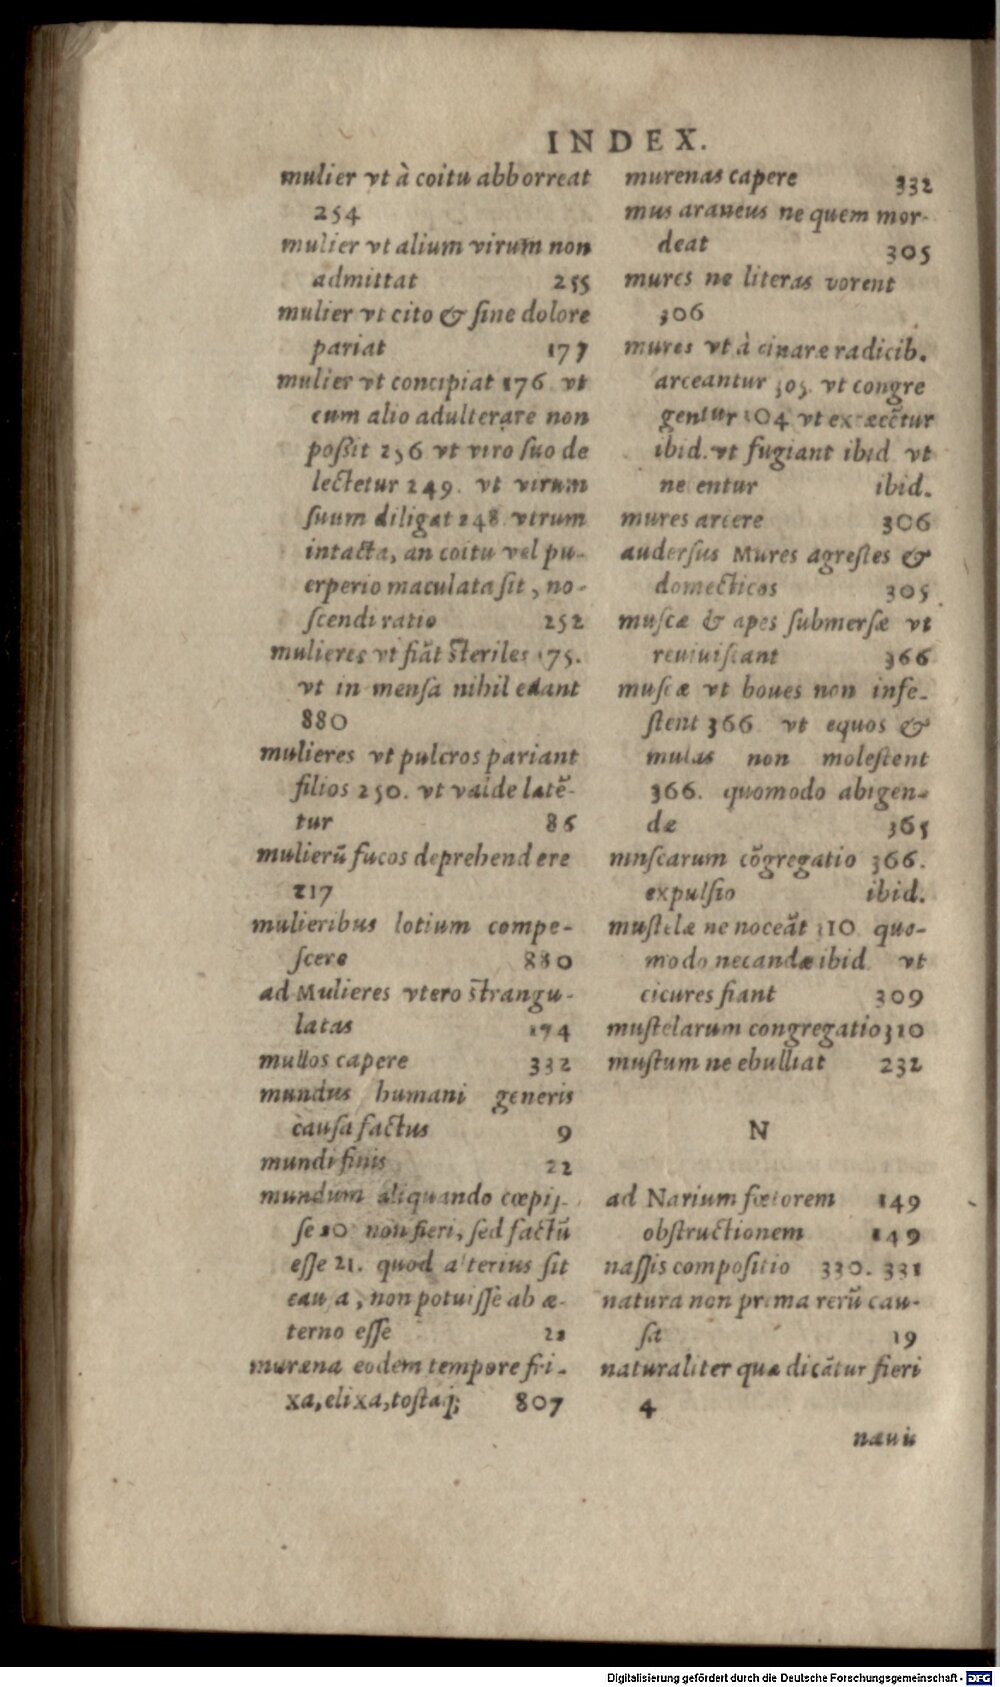 INDEX.
mulier vt à coitu abhorreat
254
mulier vt alium virum non
admittat 255
mulier vt cito & sine dolore
pariat 177
mulier vt concipiat 176 vt
cum alio adulterare non
possit 256 vt viro suo de
lectetur 249. vt virum
suum diligat 248 vtrum
intacta, an coitu vel pu-
erperio maculata sit, no-
scendi ratio 252
mulieres vt fiāt steriles 175.
vt in mensa nihil edant
880
mulieres vt pulcros pariant
filios 250. vt valde latē-
tur 86
mulierū fucos deprehendere
217
mulieribus lotium compe-
scere 880
ad Mulieres vtero strangu-
latas 174
mullos capere 332
mundus humani generis
causa factus 9
mundi finis 22
mundum aliquando cœpij-
se 20 non fieri, sed factū
esse 21. quod alterius sit
causa, non potuisse ab æ-
terno esse
muræna eodem tempore fri-
xa, elixa, tostaq; 807
murenas capere 332
mus araneus ne quem mor-
deat 305
mures ne literas vorent
306
mures vt à cinaræ radicib.
arceantur 305. vt congre
gentur 304 vt excæcētur
ibid. vt fugiant ibid vt
ne entur ibid.
mures arcere 306
audersus Mures agrestes &
domecticos 305
muscæ & apes submersæ vt
reuiuiscant 366
muscæ vt boues non infe-
stent 366 vt equos &
mulas non molestent
366. quomodo abigen-
dæ 365
mnscarum cōgregatio 366.
expulsio ibid.
mustelæ ne noceāt 310 quo-
modo necandæ ibid vt
cicures fiant 309
mustelarum congregatio 310
mustum ne ebulliat 232
N
ad Narium fœtorem 149
obstructionem 149
nassis compositio 330. 331
natura non prima rerū cau-
sa 19
naturaliter quæ dicātur fieri
4
næuii